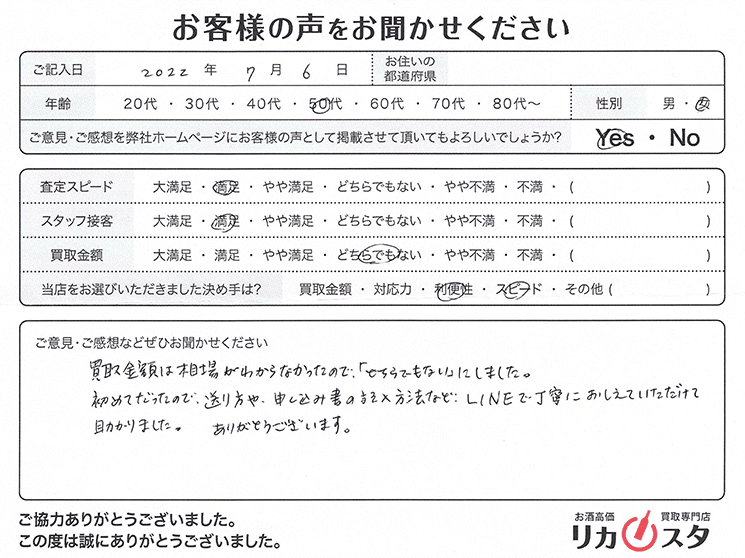 お客様の声をお聞かせください
ご記入日 2022 年 7 月 6 日 お住いの都道府県
年齢 20代 ・ 30代 ・ 40代 ・ 50代 ・ 60代 ・ 70代 ・ 80代〜 性別 男 ・ 女
ご意見・ご感想を弊社ホームページにお客様の声として掲載させて頂いてもよろしいでしょうか? Yes ・ No
査定スピード 大満足 ・ 満足 ・ やや満足 ・ どちらでもない ・ やや不満 ・ 不満 ・ ( )
スタッフ接客 大満足 ・ 満足 ・ やや満足 ・ どちらでもない ・ やや不満 ・ 不満 ・ ( )
買取金額 大満足 ・ 満足 ・ やや満足 ・ どちらでもない ・ やや不満 ・ 不満 ・ ( )
当店をお選びいただきました決め手は? 買取金額 ・ 対応力 ・ 利便性 ・ スピード ・ その他 ( )
ご意見・ご感想などぜひお聞かせください
買取金額は相場がわからなかったので、「どちらでもない」にしました。
初めてだったので、送り方や、申し込み書の記入方法など、LINEで丁寧におしえていただけて
助かりました。 ありがとうございます。
ご協力ありがとうございました。
この度は誠にありがとうございました。
お酒高価 買取専門店
リカスタ